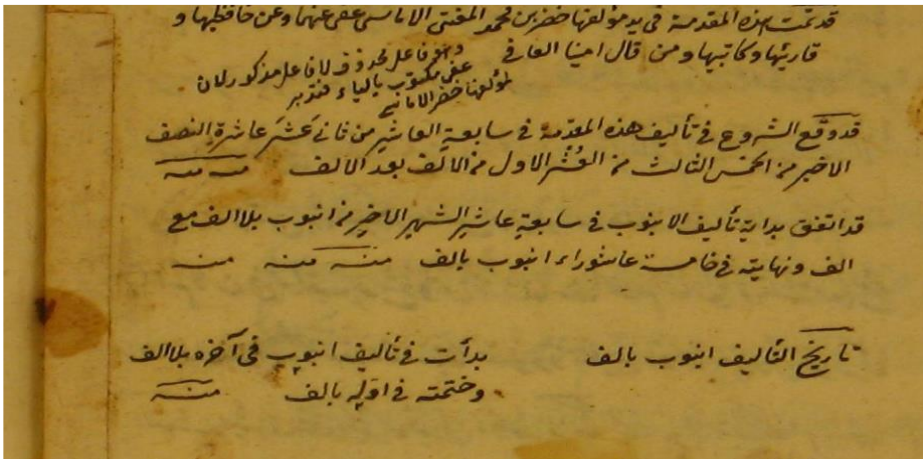 قد تمت هذه المقدمة في يد مؤلفها خضر بن محمد المفتي الاماسي عفى عنهما وعن حافظها و
قاريئها وكاتبها ومن قال امينا العافي
وهو فاعل محذوف لا فاعل مذكور لان
عفى مكتوب بالياء فتدبر
لمؤلفها خضر الاماسي
قد وقع الشروع في تأليف هذه المقدمة في سابعة العاشر من ثاني عشر عاشرة النصف
الاخير من الخمس الثالث من العشر الاول من الالف بعد الالف منه
قد اتفق بداية تأليف الانبوب في سابعة عاشر الشهر الاخير من انبوب بلا الف مع
الف ونهايته في خامسة عاشوراء انبوب بالف منه منه منه
تاريخ التأليف انبوب بالف
بدأت في تأليف انبوب في آخره بلا الف
وختمته في اوله بالف منه